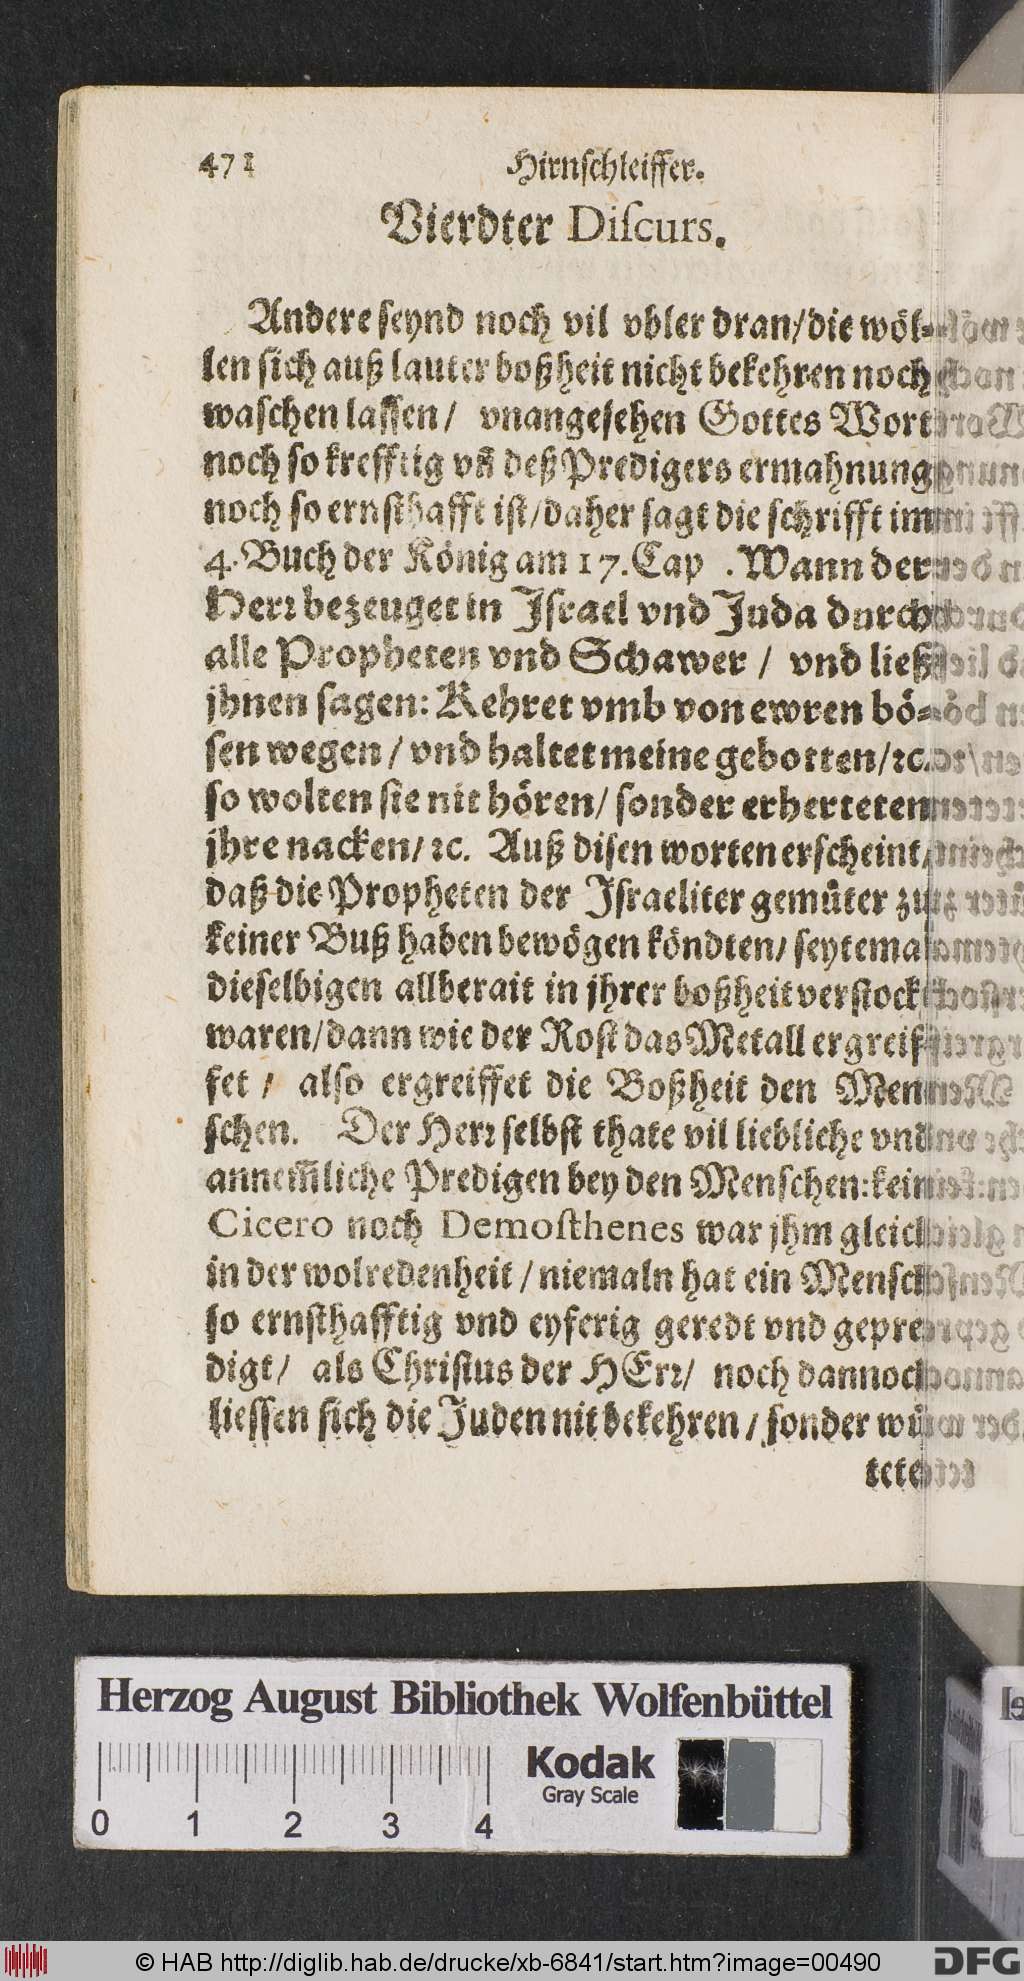 471 Hirnschleiffer.
Vierdter Discurs.
Andere seynd noch vil vbler dran/die wöl⸗
len sich auß lauter boßheit nicht bekehren noch
waschen lassen/ vnangesehen Gottes Wort
noch so krefftig vñ deß Predigers ermahnung
noch so ernsthafft ist/daher sagt die schrifft im
4. Buch der König am 17. Cap . Wann der
Herr bezeuget in Israel vnd Juda durch
alle Propheten vnd Schawer / vnd ließ
jhnen sagen: Kehret vmb von ewren bö⸗
sen wegen / vnd haltet meine gebotten/ꝛc.
so wolten sie nit hören/ sonder erherteten
jhre nacken/ ꝛc. Auß disen worten erscheint/
daß die Propheten der Israeliter gemüter zu
keiner Buß haben bewögen köndten/ seytemal
dieselbigen allberait in jhrer boßheit verstockt
waren/dann wie der Rost das Metall ergreif⸗
fet / also ergreiffet die Boßheit den Men⸗
schen. Der Herr selbst thate vil liebliche vnd
annem̃liche Predigen bey den Menschen: kein
Cicero noch Demosthenes war jhm gleich
in der wolredenheit / niemaln hat ein Mensch
so ernsthafftig vnd eyferig geredt vnd gepre⸗
digt/ als Christus der HErr/ noch dannoch
liessen sich die Juden nit bekehren / sonder wü⸗
tete
Herzog August Bibliothek Wolfenbüttel
Kodak
Gray Scale
0 1 2 3 4
© HAB http://diglib.hab.de/drucke/xb-6841/start.htm?image=00490
DFG